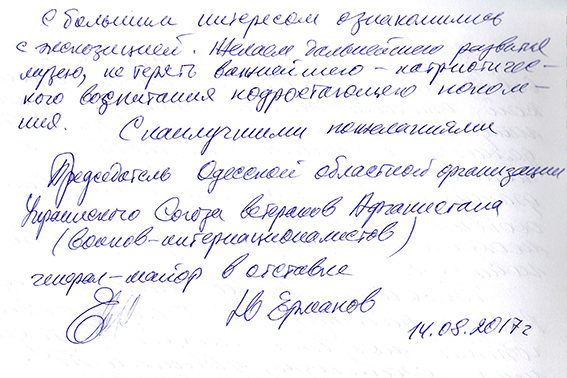 С большим интересом ознакомились
с экспозицией. Желаем дальнейшего развития
музею, не терять важнейшего – патриотичес-
кого воспитания подростающего поколе-
ния. С наилучшими пожеланиями
Председатель Одесской областной организации
Украинского Союза ветеранов Афганистана
(воинов-интернационалистов)
генерал-майор в отставке
Ю Ерманов
14.08.2017г